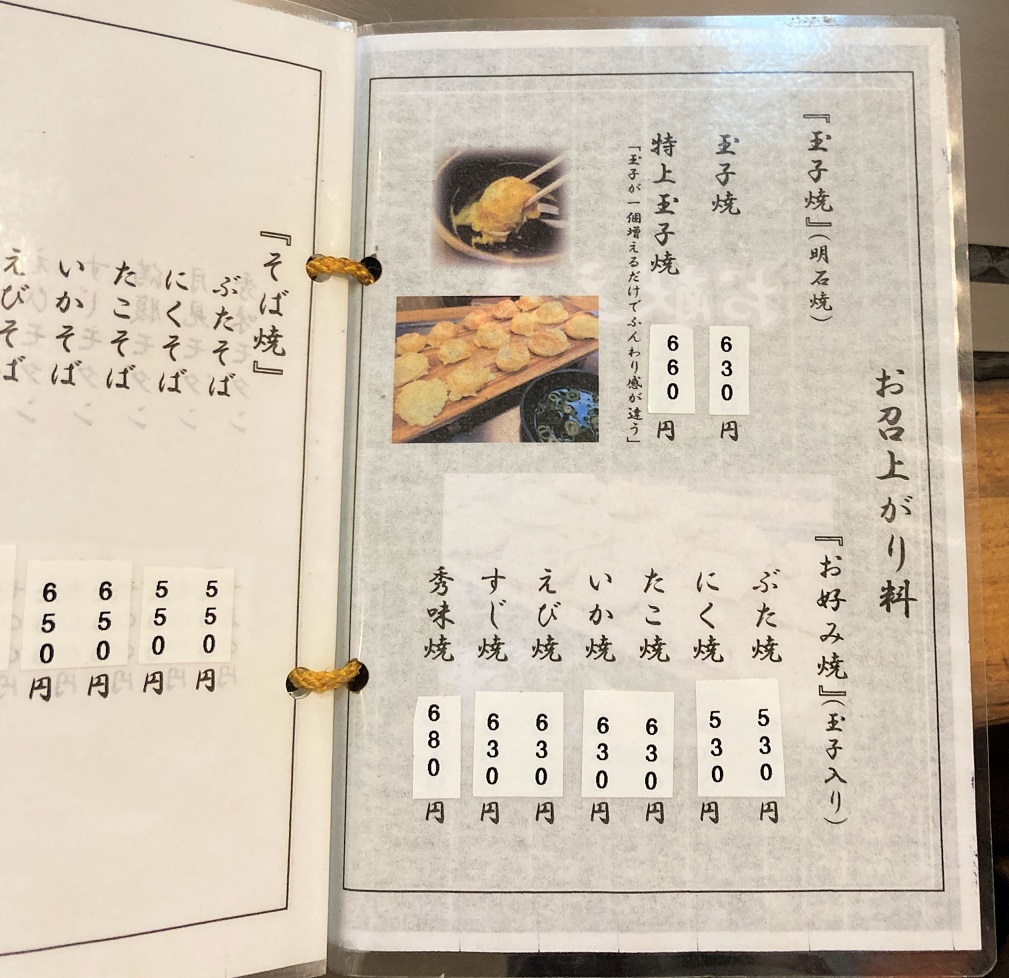 お召上がり料
『玉子焼』(明石焼)
玉子焼 630円
特上玉子焼 660円
「玉子が一個増えるだけでふんわり感が違う」
『お好み焼』(玉子入り)
ぶた焼 530円
にく焼 530円
たこ焼 630円
いか焼 630円
えび焼 630円
すじ焼 630円
秀味焼 680円
『そば焼』
ぶたそば 550円
にくそば 550円
たこそば 650円
いかそば 650円
えびそば